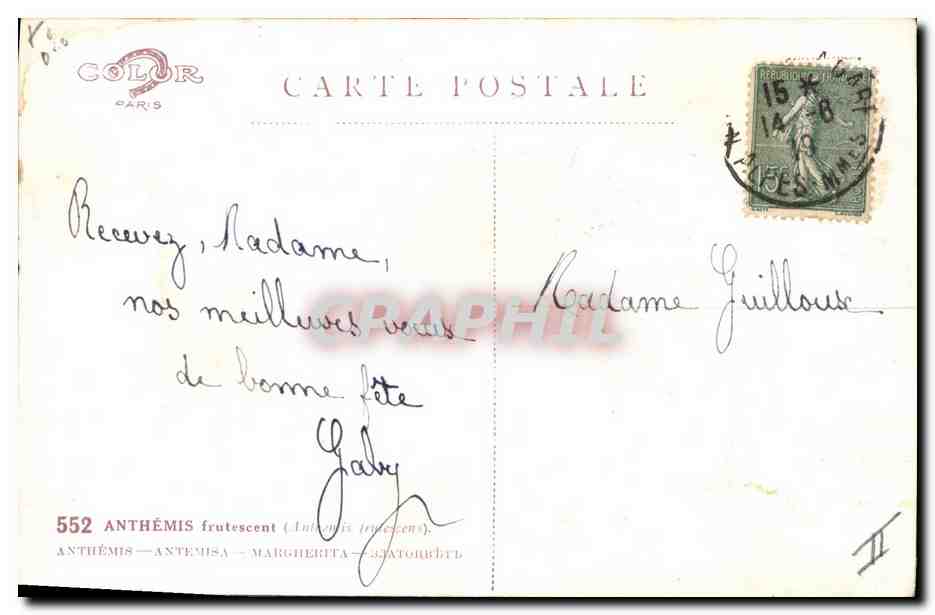 COLOR
PARIS
CARTE POSTALE
REPUBLIQUE FRANCAISE
15 *
14 -8
19
15c
Recevez, Madame,
nos meilleures vœux
de bonne fête
Gaby
Madame Guilloux
CPAPHIL
552 ANTHÉMIS frutescent (Antemis frutescens).
ANTHÉMIS — ANTEMISA — MARGHERITA — ЗЗАТОПВѢТЬ
II